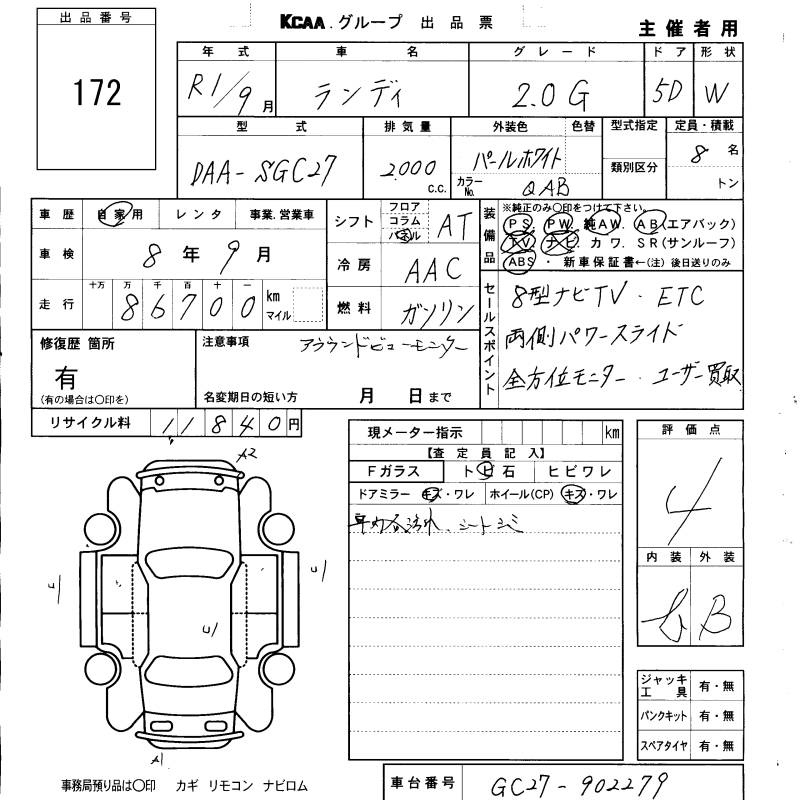 出品番号
172
KCAA.グループ 出品票
主催者用
年式 車名 グレード ドア 形状
R1/9月 ランディ 2.0G 5D W
型式 排気量 外装色 色替 型式指定 定員・積載
DAA-SGC27 2,000 c.c. パールホワイト 類別区分 8名
カラーNo. QAB トン
車歴 自家用 レンタ 事業.営業車
シフト フロア コラム パネル AT
装備品 ※純正のみ〇印をつけて下さい。
PS. PW. 純AW. AB(エアバック)
TV. ナビ. カワ. SR(サンルーフ)
ABS・ 新車保証書←(注)後日送りのみ
車検 8年9月
冷房 AAC
走行 十万 万 千 百 十 一
86700 km マイル
燃料 ガソリン
セールスポイント
8型ナビTV・ETC
両側パワースライド
全方位モニター・ユーザー買取
修復歴 箇所
有
(有の場合は〇印を)
注意事項 アラウンドビューモニター
名変期日の短い方 月 日まで
リサイクル料 11840円
現メーター指示 km
【査定員記入】
Fガラス トビ石 ヒビワレ
ドアミラー キズ・ワレ ホイール(CP) キズ・ワレ
車内各汚れ、シートシミ
評価点
4
内装 外装
B
A2
U1
U1
U1
A1
ジャッキ工具 有・無
パンクキット 有・無
スペアタイヤ 有・無
事務局預り品は〇印 カギ リモコン ナビロム
車台番号 GC27-902279